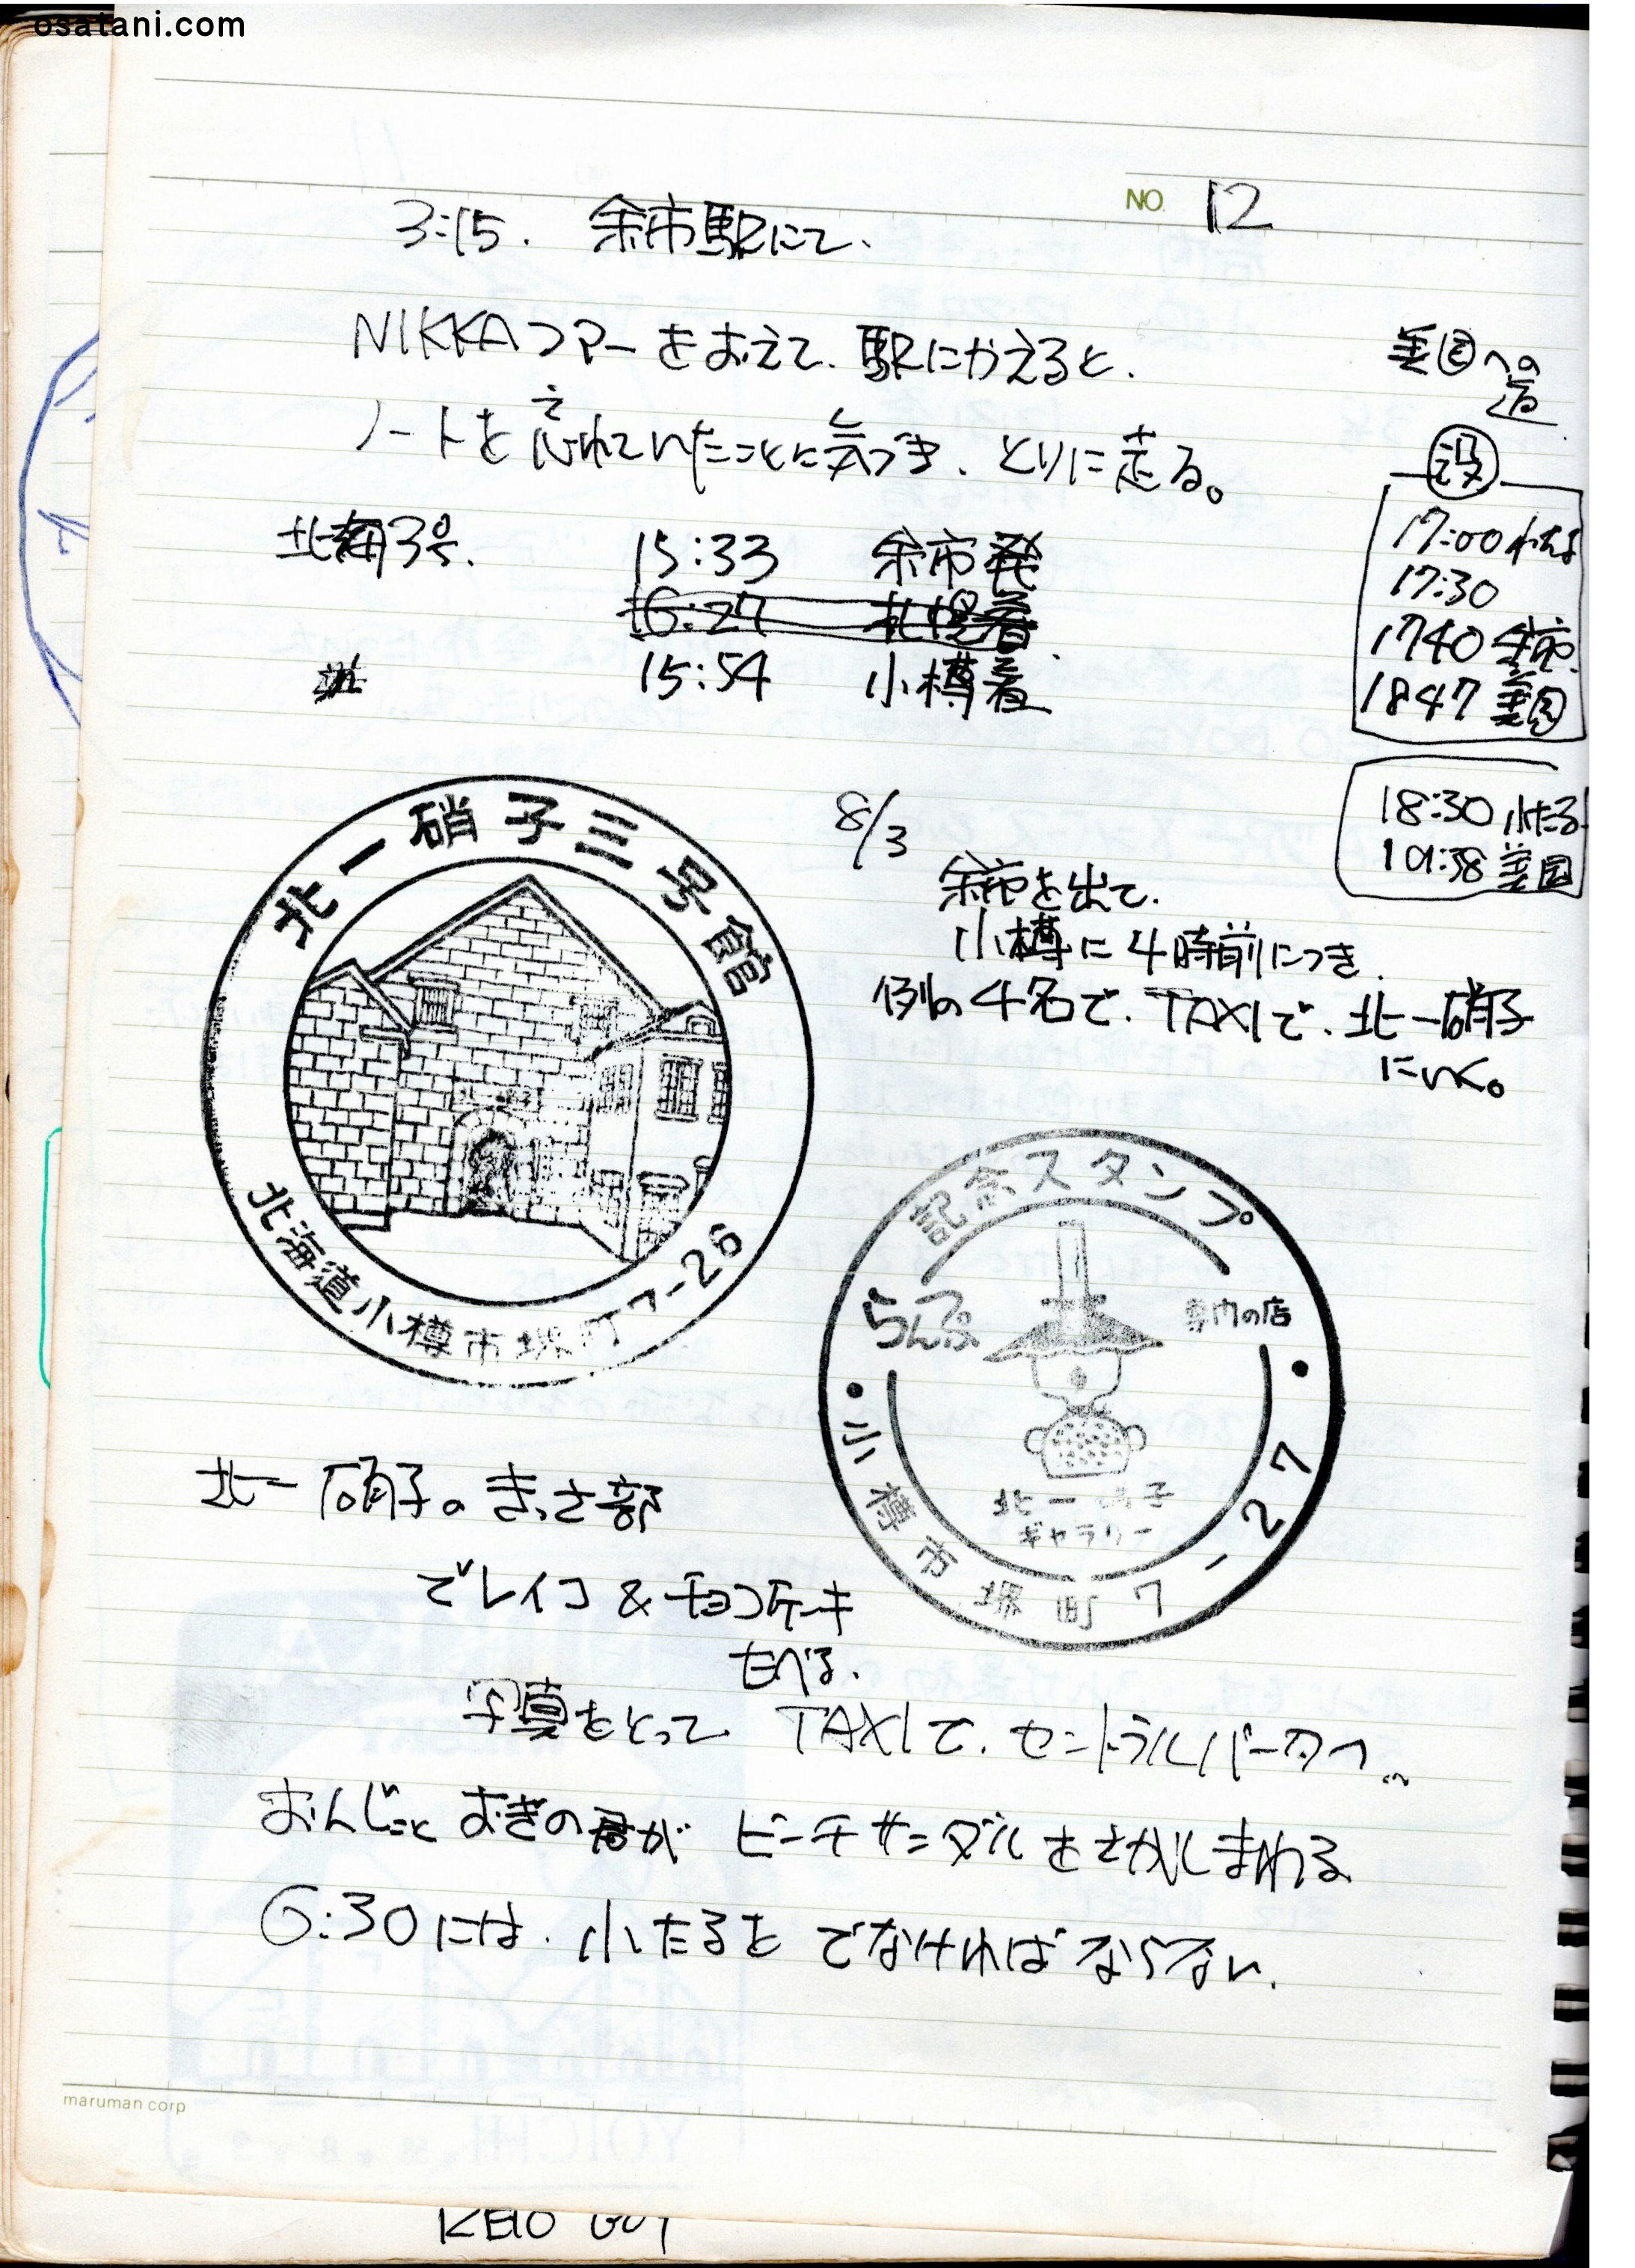 osatani.com
NO. 12
3:15. 余市駅にて、
NIKKAツアーをおえて、駅にかえると、
ノートを忘れていたことに気づき、とりに走る。
北海3号. 15:33 余市発
16:27 札幌着
15:54 小樽着
美国への
道
没
17:00 小たる
17:30
1740 余市
1847 美国
18:30 小たる
19:38 美国
北一硝子三号館
北海道小樽市堺町7-26
8/3
余市を出て、
小樽に4時前につき、
例の4名で、TAXIで、北一硝子
にいく。
記念スタンプ
らんぷ 専門の店
北一硝子
ギャラリー
小樽市堺町7-27
北一硝子のきっさ部
でレイコ&チョコケーキ
たべる.
写真をとって TAXIで、セントラルバータへ
おんじと おぎの君が ビーチサンダルをさがしまわる
6:30には、小たるを でなければならない、
maruman corp
KEIO